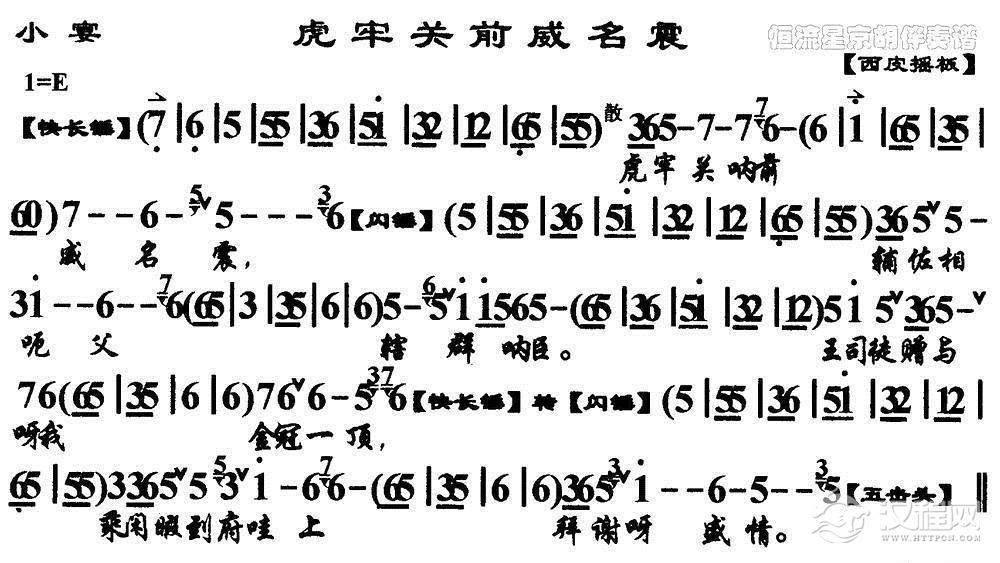 小宴 虎牢关前威名震 恒流星京胡伴奏谱
1=E 【西皮摇板】
【快长锤】(7|6|5|55|36|51|32|12|65|55)散365-7-7 7 6-(6|1|65|35|
虎牢关呐前
60)7--6- 5 5--- 3 6【闪锤】(5|55|36|51|32|12|65|55)365 5-
威名震, 辅佐相
31--6-- 7 6(65|3|35|6|6)5- 6 5 1 1565-(65|36|51|32|12)51 5 365-
呃父 辖群呐臣。 王司徒赠与
76(65|35|6|6)76 6-5 37 6【快长锤】转【闪锤】(5|55|36|51|32|12|
呀我 金冠一顶,
65|55)3365 5 5 3 1-6 7 6-(65|35|6|6)365 3 1--6-5-- 3 5【五击头】
乘闲暇到府哇上 拜谢呀盛情。
汉程网
WWW.HTTPCN.COM